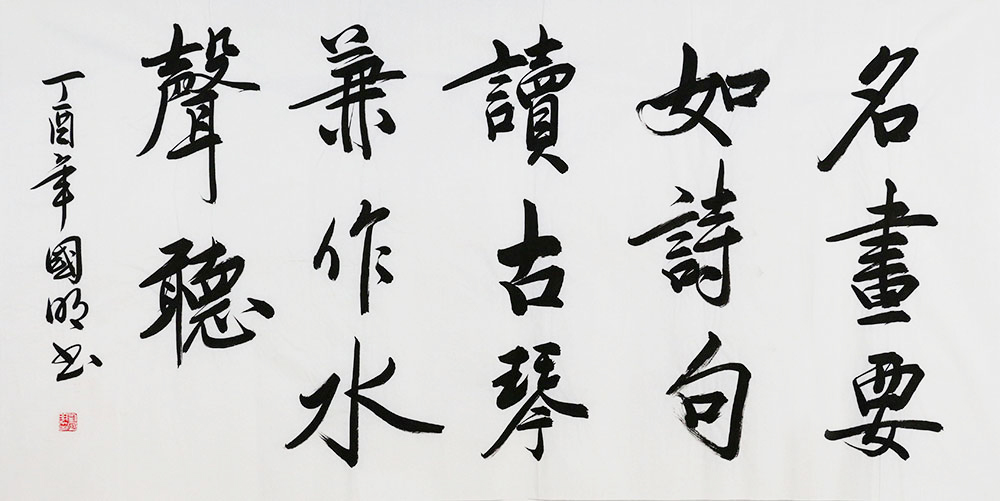 名畫要
如詩句
讀古琴
兼作水
聲聽
丁酉年國明书